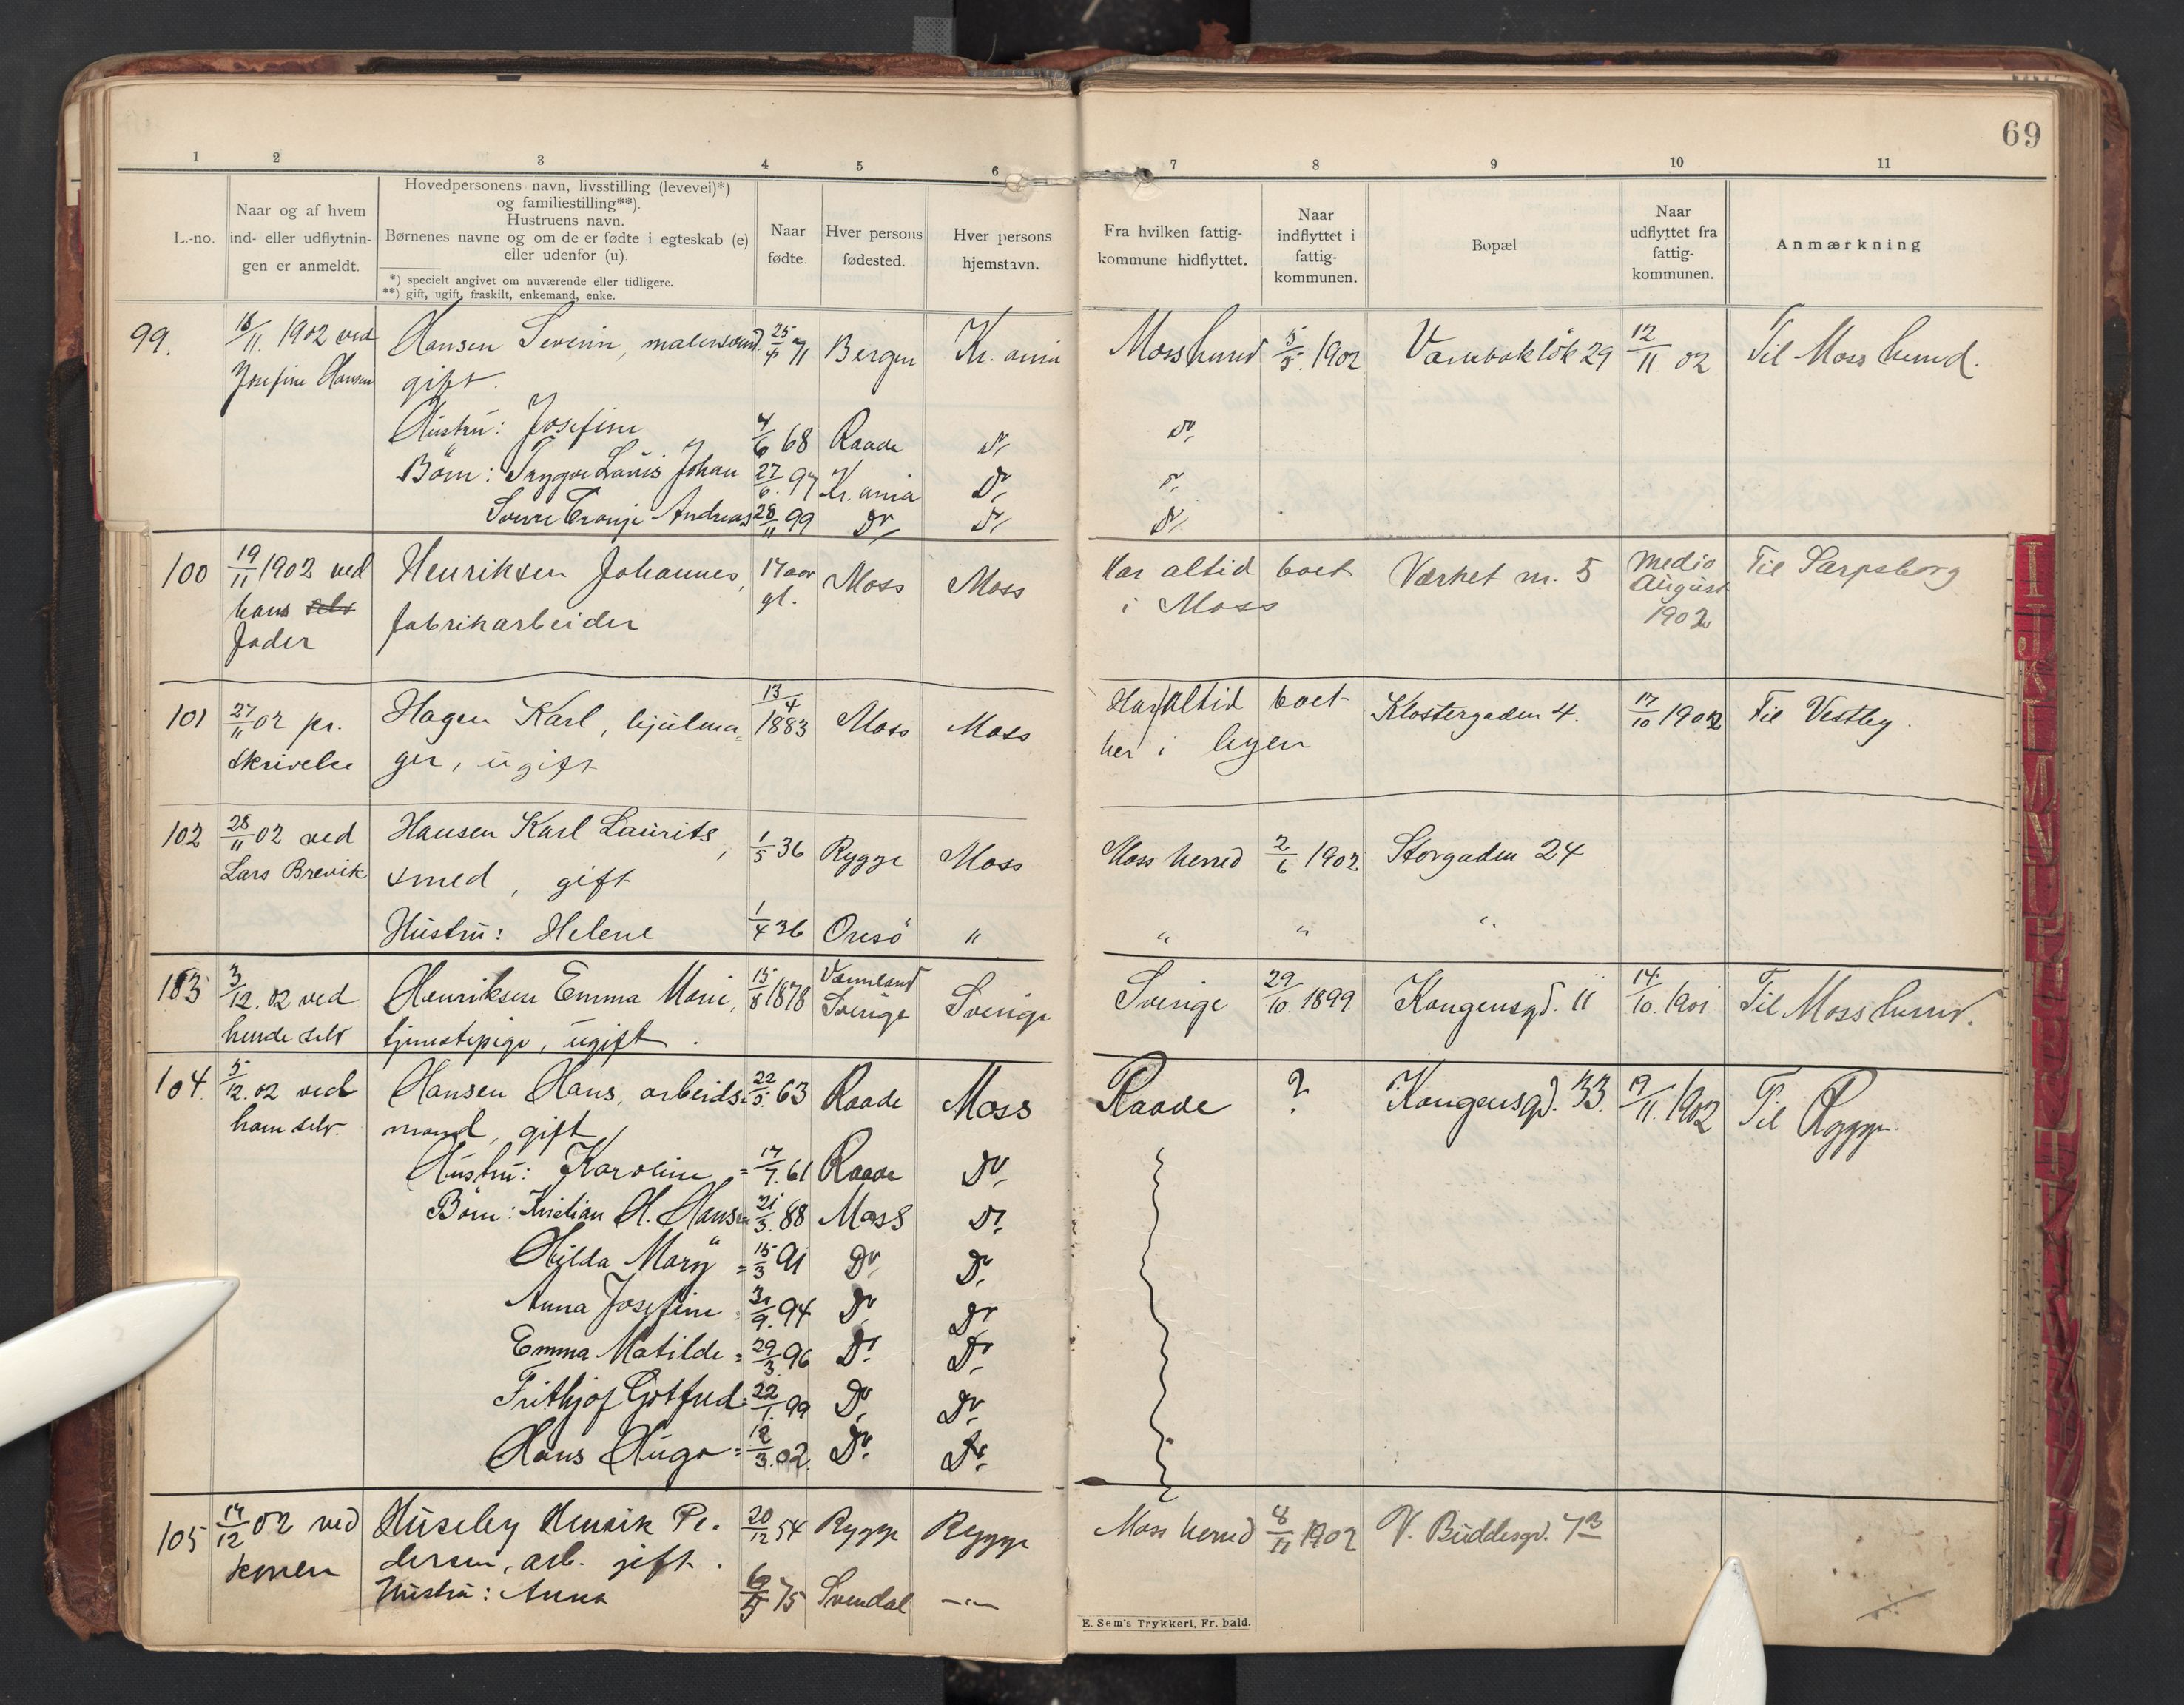 69
1 2 3 4 5 6 7 8 9 10 11
L.-no.
Naar og af hvem
ind- eller udflytnin-
gen er anmeldt.
Hovedpersonens navn, livsstilling (levevei)*)
og familiestilling**).
Hustruens navn.
Børnenes navne og om de er fødte i egteskab (e)
eller udenfor (u).
*) specielt angivet om nuværende eller tidligere.
**) gift, ugift, fraskilt, enkemand, enke.
Naar
fødte.
Hver persons
fødested.
Hver persons
hjemstavn.
Fra hvilken fattig-
kommune hidflyttet.
Naar
indflyttet i
fattig-
kommunen.
Bopæl
Naar
udflyttet fra
fattig-
kommunen.
Anmærkning
99. 18/11 1902 ved Hansen Severin, malersvend. 25/4 71 Bergen Kr.ania Moss herred 5/5 1902 29 12/11 02 Til Moss herred.
Josefine Hansen gift.
Hustru: Josefine 4/6 68 Raade Do Do
Børn: Trygve Lauis Johan 27/6 97 Kr.ania Do Do
Andreas 28/11 99 Do Do Do
100 19/11 1902 ved Henriksen Johannes, 17 aar Moss Moss Har altid boet Værket nr. 5 Medio Til Sarpsborg
hans selv fabrikarbeider gl. i Moss August
fader 1902
101 27/11 02 pr. Hagen Karl, hjulma= 13/4 1883 Moss Moss Har altid boet Klostergaden 4. 17/10 1902 Til Vestby.
skrivelse ger, ugift her i byen
102 28/11 02 ved Hansen Karl Laurits, 1/5 36 Rygge Moss Moss herred 2/6 1902 Storgaden 24
Lars Brevik smed, gift
Hustru: Helene 1/4 36 Onsö " " " "
103 3/12.02 ved Henriksen Emma Marie, 15/8 1878 Värmland Sverige Sverige Sverige 29/10.1899 Kongensgd. 11 14/10.1901 Til Moss herred.
hende selv tjenestepige, ugift.
104. 5/12.02 ved Hansen Hans, arbeids= 22/5 63 Raade Moss Raade ? Kongensgd. 33. 19/11.1902 Til Rygge.
ham selv. mand, gift
Hustru: Karoline = 17/7.61 Raade Do
Börn: Kristian H. Hansen 21/3.88 Moss Do
Hilda Mary = 15/3 91 Do Do
Anna Josefine 21/9.94 Do Do
Emma Matilde = 29/3.96 Do Do
Frithjof Gotfred = 22/1.99 Do Do
Hans Hugo = 12/3.02. Do Do
105 17/12 02 ved Huseby Henrik Pe- 20/12 54 Rygge Rygge Moss herred 8/11 1902 V. Buddesgd. 7B
konen dersen, arb. gift.
Hustru: Anna 75 Svendal —"—
E. Sem's Trykkeri, Fr. hald.
I
J
K
L
M
N